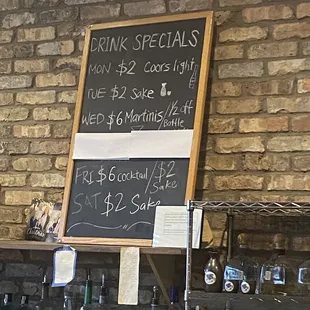 DRINK SPECIALS
MON $2 Coors light
TUE $2 Sake
WED $6 Martinis / 1/2 off Bottle
FRI $6 cocktail / $2 Sake
SAT $2 Sake